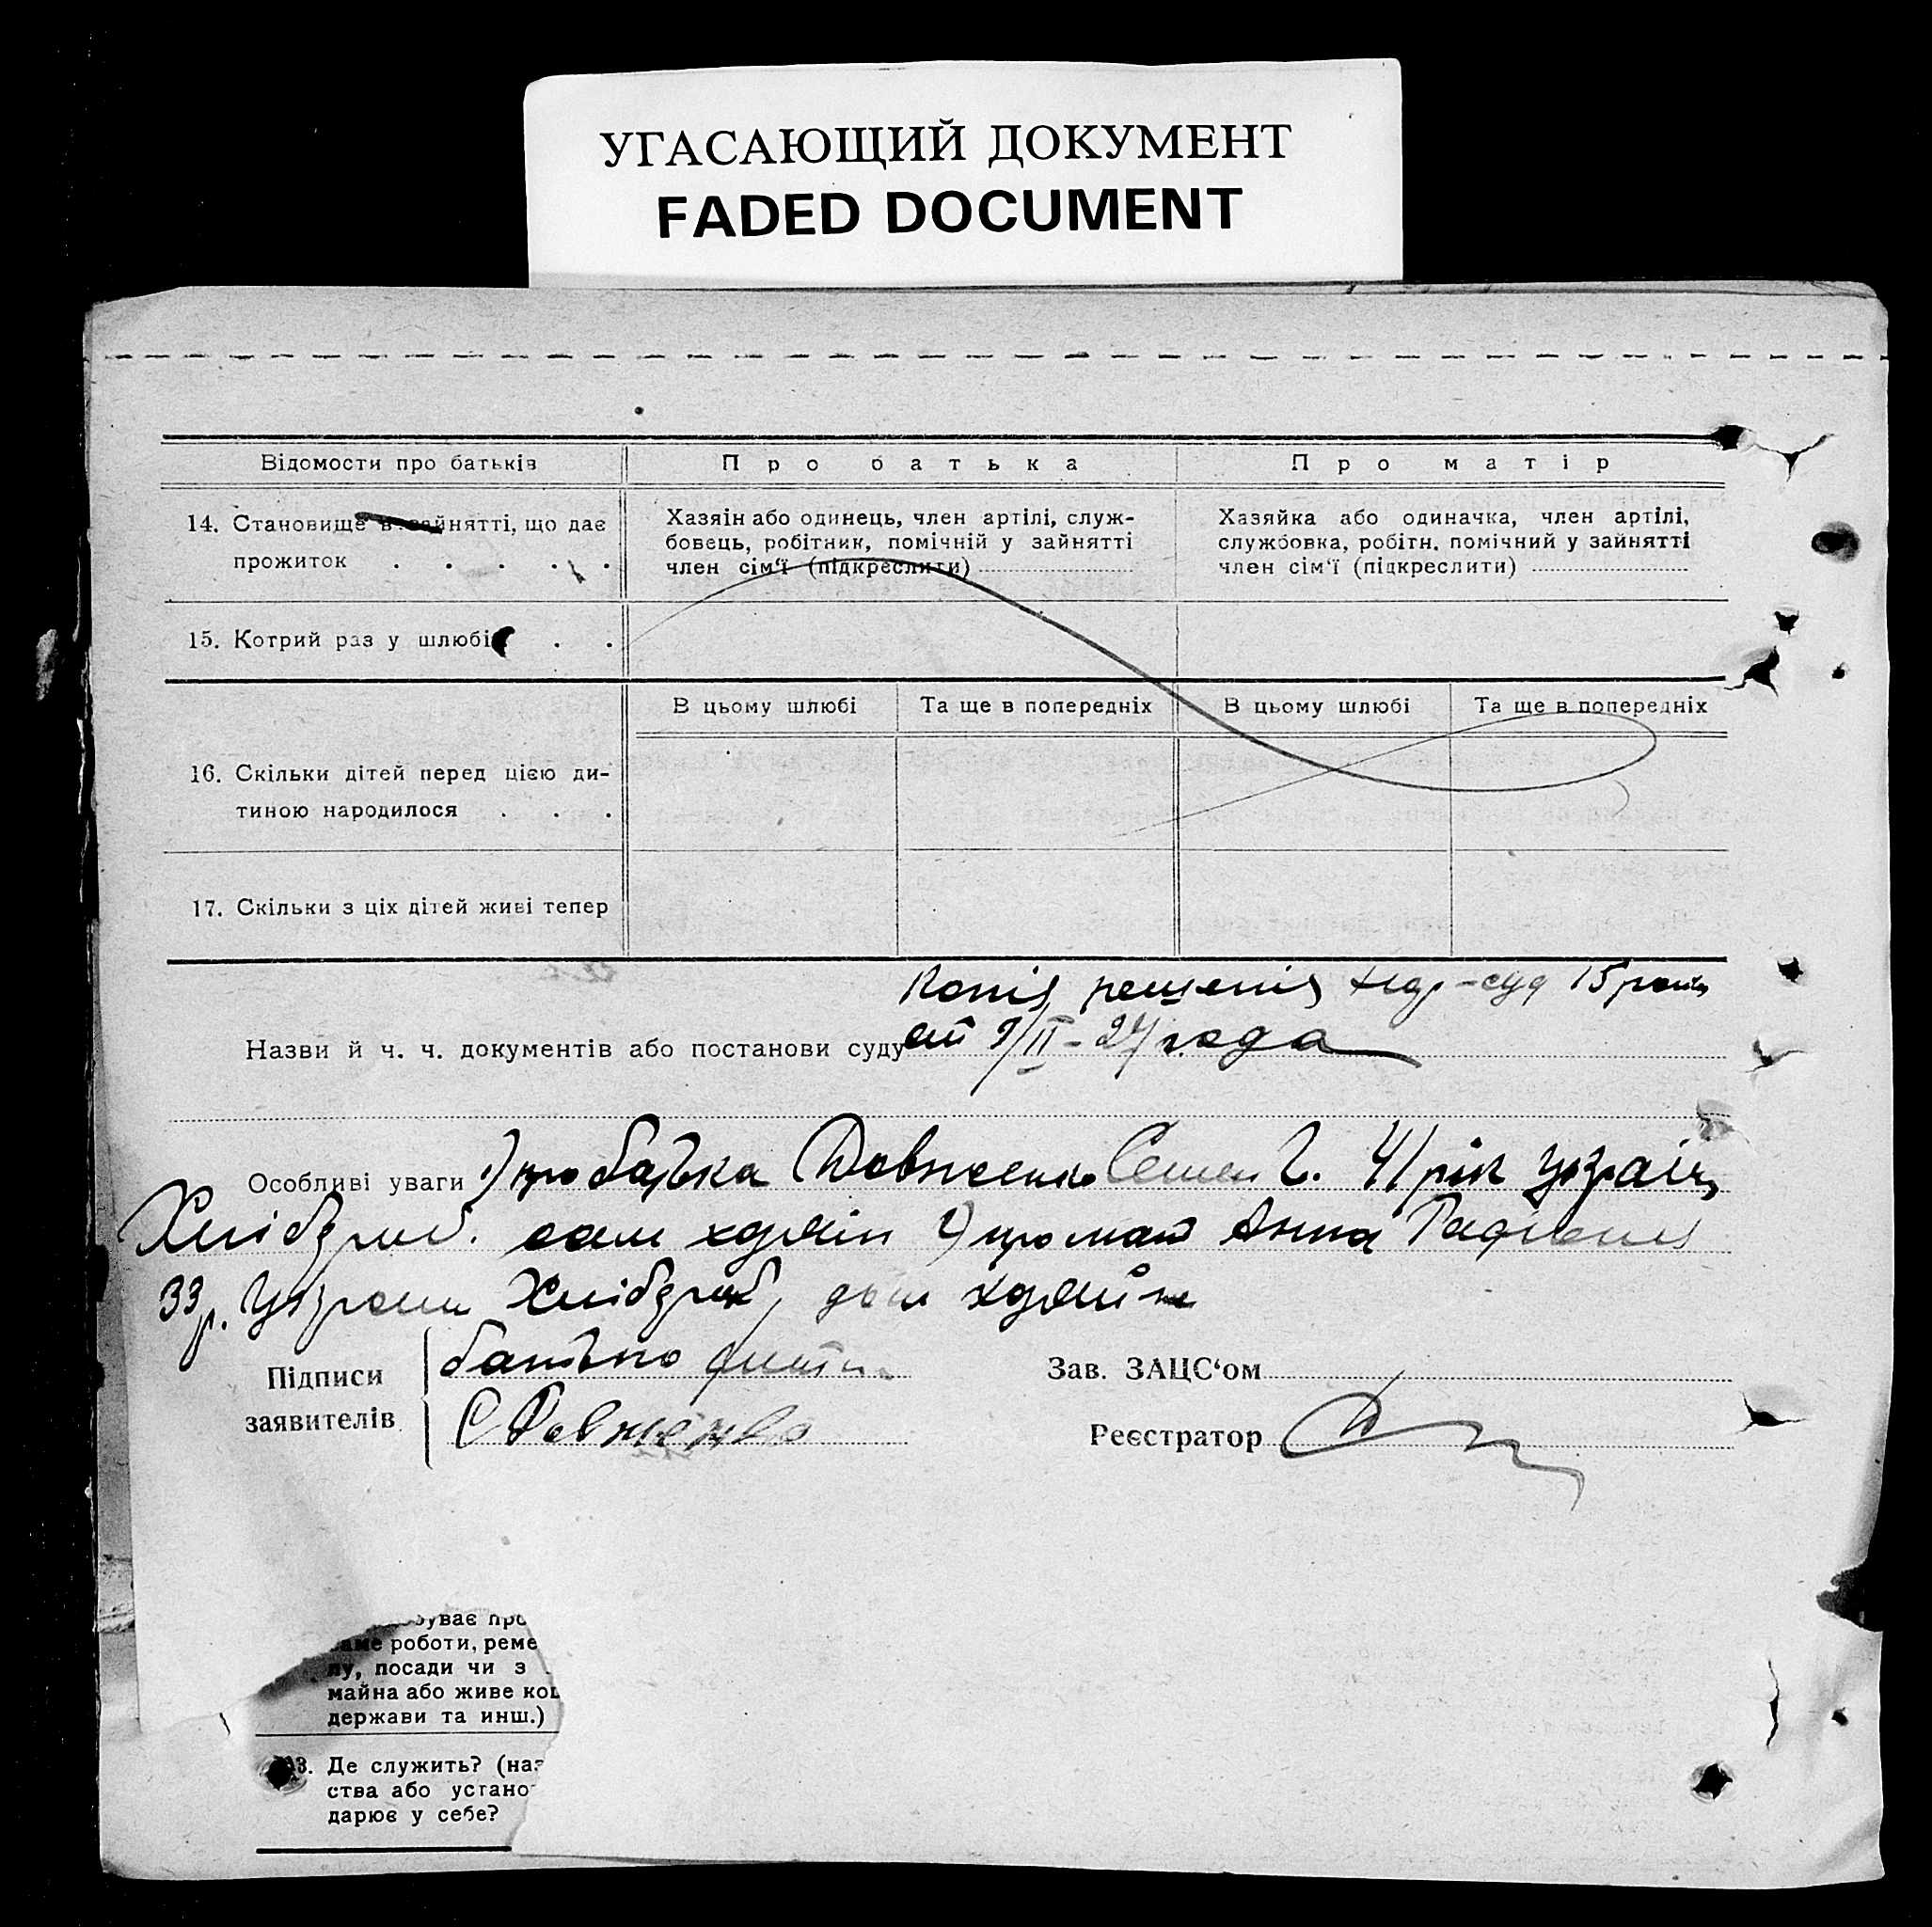 УГАСАЮЩИЙ ДОКУМЕНТ
FADED DOCUMENT
Відомости про батьків
Про батька
Про матір
14. Становище в зайнятті, що дає
прожиток . . . . .
Хазяін або одинець, член артілі, служ-
бовець, робітник, помічній у зайнятті
член сім‘ї (підкреслити)
Хазяйка або одиначка, член артілі,
службовка, робітн. помічний у зайнятті
член сім‘ї (підкреслити)
15. Котрий раз у шлюбі . .
В цьому шлюбі
Та ще в попередніх
В цьому шлюбі
Та ще в попередніх
16. Скільки дітей перед цією ди-
тиною народилося . . .
17. Скільки з ціх дітей живі тепер
Копія решенія суд 15
Назви й ч. ч. документів або постанови суду от 9/II-24 года
Особливі уваги 1) про батька Довженко Семен 41 рік Україн
Хлібороб. сам 2) про мат Анна
33 р. Хлібороб,
Підписи
заявителів
батько
С Довженко
Зав. ЗАЦС‘ом
Реєстратор
буває про
аме роботи, реме
лу, посади чи з
майна або живе кош
держави та инш.)
3. Де служить? (наз
ства або устано
дарює у себе?